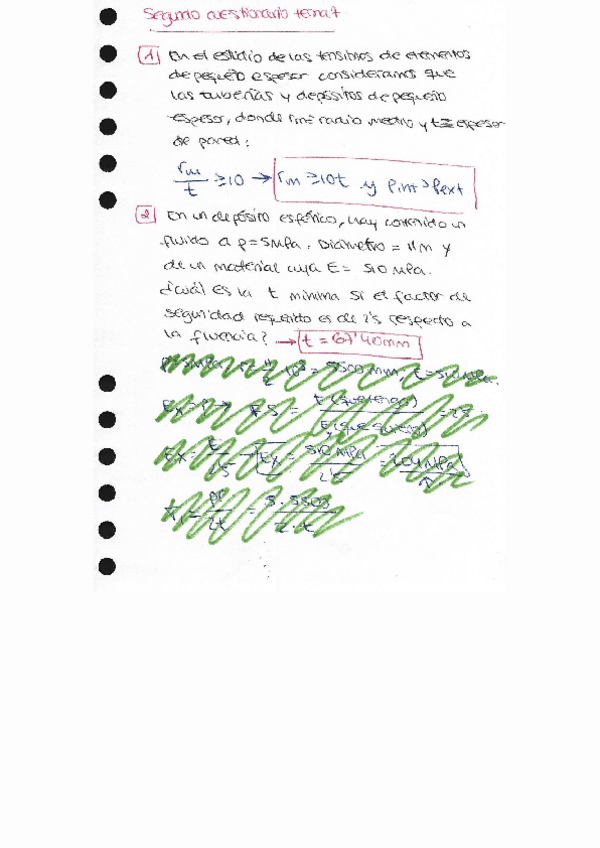 Segundo cuestionario tema 7
1 En el estudio de las tensiones de elementos
de pequeño espesor consideramos que
las tuberías y depósitos de pequeño
espesor, donde rm= radio medio y t= espesor
de pared:
rm/t ≥10 → rm ≥10t y Pint>Pext
2 En un depósito esférico, hay contenido un
fluido a p=5MPa. Diámetro = 11m y
de un material cuya E= 510 MPa.
¿Cuál es la t mínima si el factor de
seguridad requerido es de 2's respecto a
la fluencia? → t = 67'40mm
= 5500 mm,
FS =
= 510 MPa / 2'5 = 204 MPa
= pr/2t = 5·5500 / 2·t